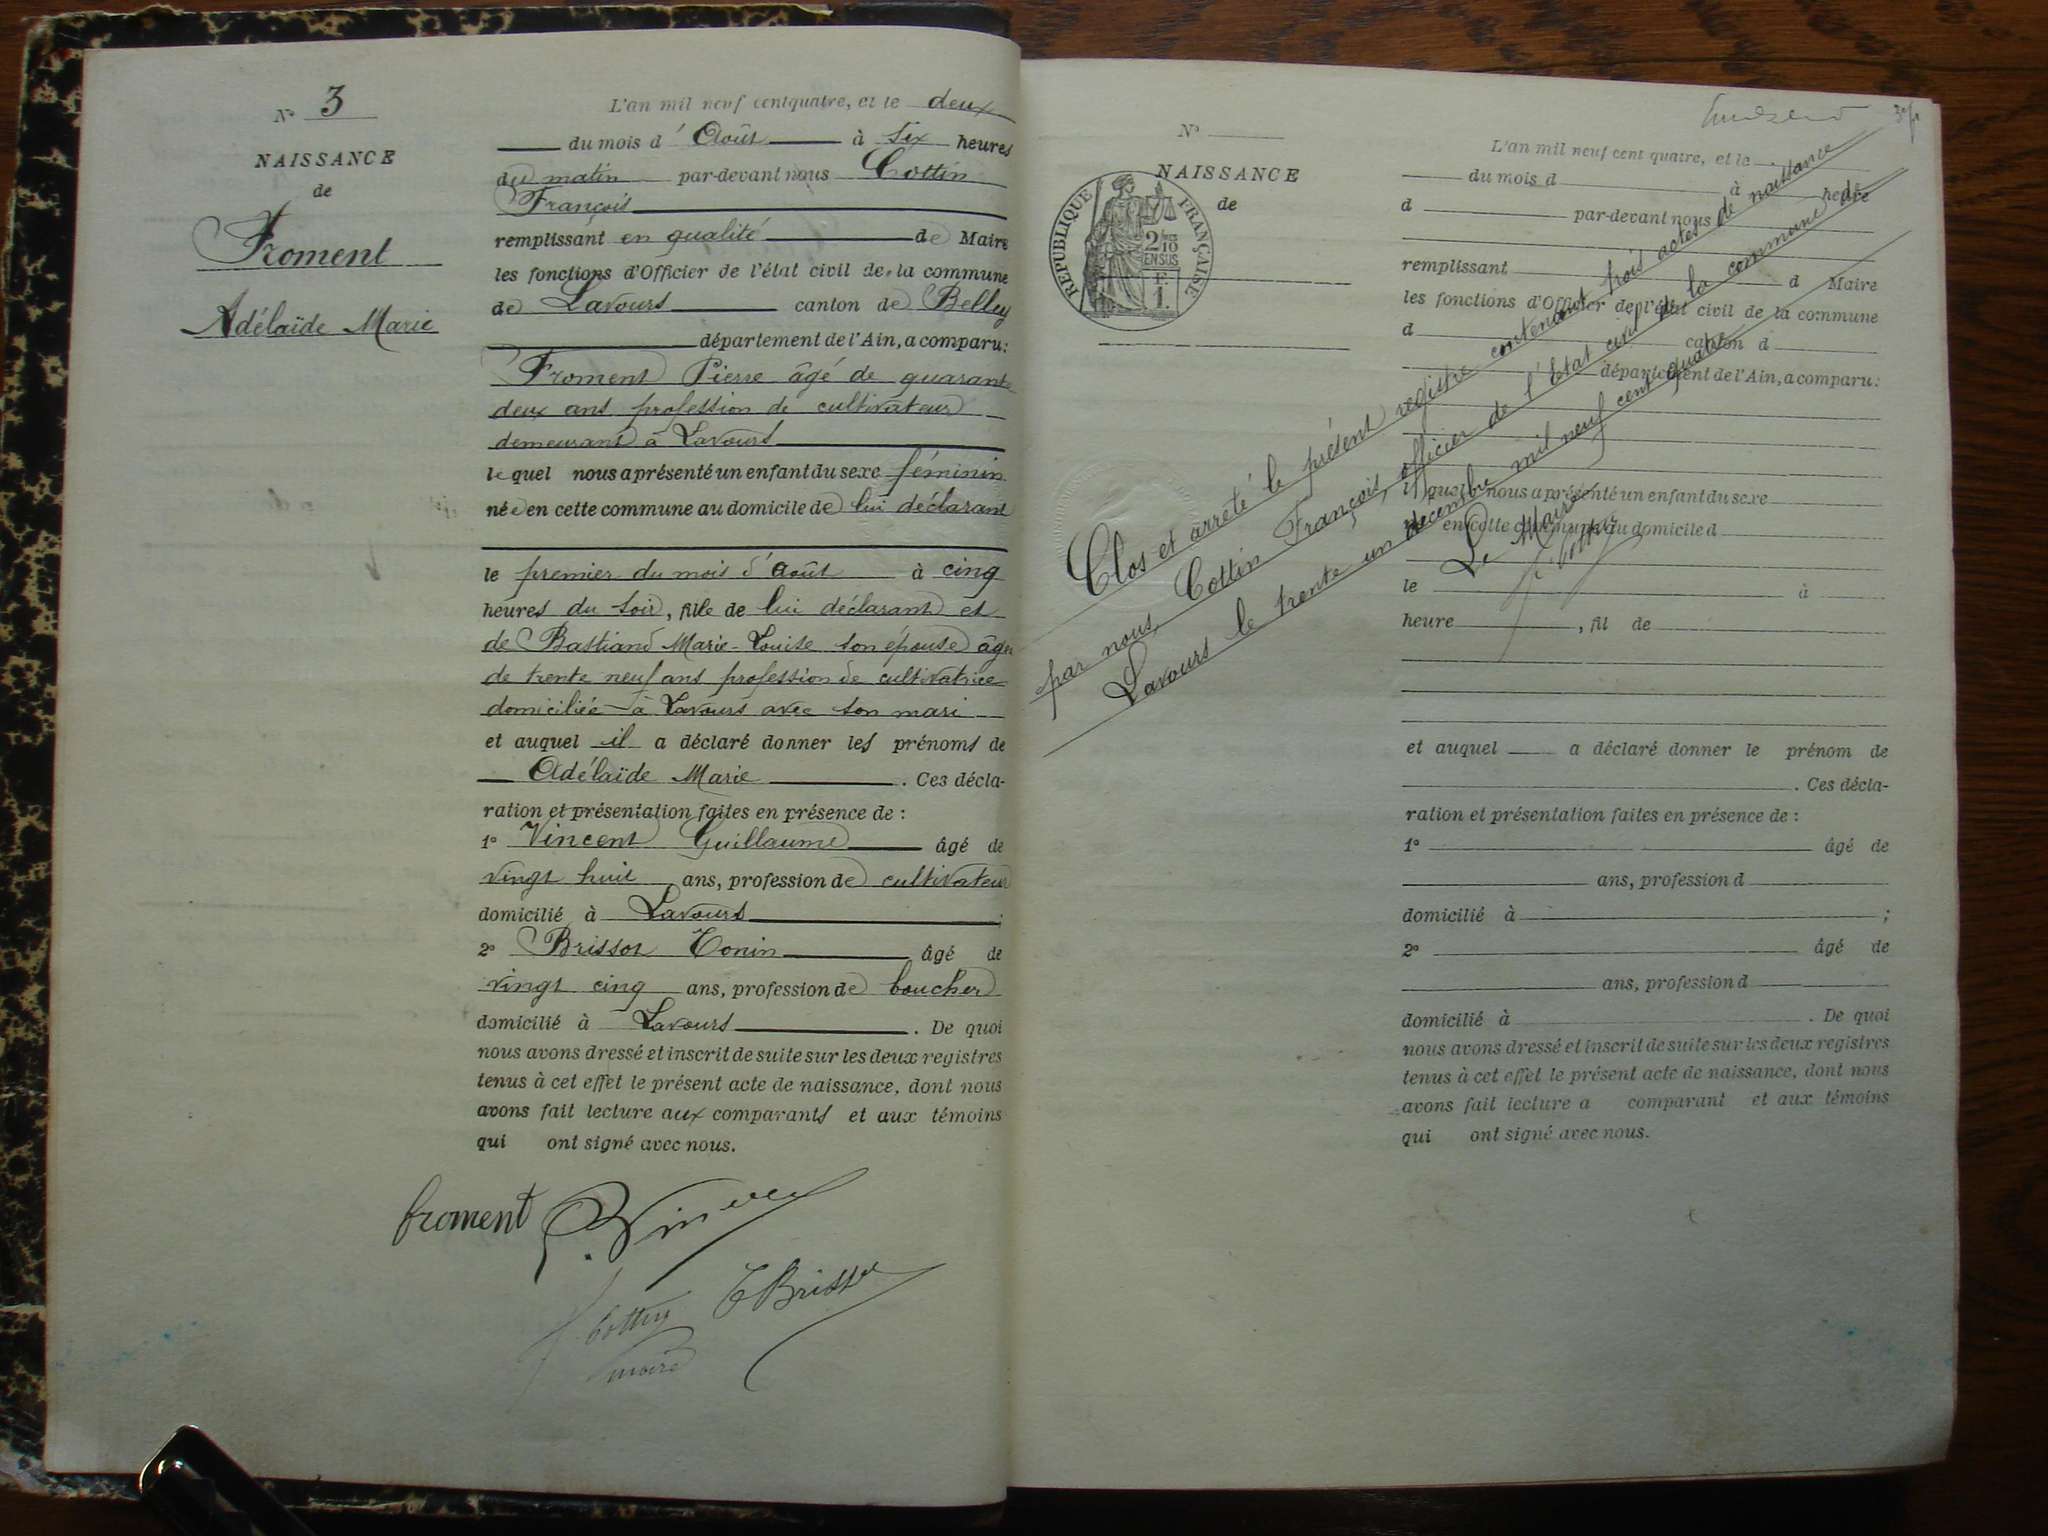 N° 3
NAISSANCE
de
Froment
Adélaïde Marie
L'an mil neuf cent quatre, et le deux
du mois d'Août à six heures
du matin par-devant nous Cottin
François
remplissant en qualité de Maire
les fonctions d'Officier de l'état civil de la commune
de Lavours canton de Belley
département de l'Ain, a comparu:
Froment Pierre âgé de quarante
deux ans profession de cultivateur
demeurant à Lavours
lequel nous a présenté un enfant du sexe féminin
née en cette commune au domicile de lui déclarant
le premier du mois d'août à cinq
heures du soir, fille de lui déclarant et
de Bastiand Marie-Louise son épouse âgée
de trente neuf ans profession de cultivatrice
domiciliée à Lavours avec son mari
et auquel il a déclaré donner les prénoms de
Adélaïde Marie. Ces décla-
ration et présentation faites en présence de :
1° Vincent Guillaume âgé de
vingt huit ans, profession de cultivateur
domicilié à Lavours ;
2° Brissot Tonin âgé de
vingt cinq ans, profession de boucher
domicilié à Lavours. De quoi
nous avons dressé et inscrit de suite sur les deux registres
tenus à cet effet le présent acte de naissance, dont nous
avons fait lecture aux comparants et aux témoins
qui ont signé avec nous.
froment
T Brissot
Cottin
maire
N°
NAISSANCE
de
RÉPUBLIQUE FRANÇAISE
2/10
EN SUS
F.
1.
L'an mil neuf cent quatre, et le
du mois d à heure
d par-devant nous
remplissant d Maire
les fonctions d'Officier de l'état civil de la commune
d canton d
département de l'Ain, a comparu:
l quel nous a présenté un enfant du sexe
n en cette commune au domicile d
le à
heure , fil de
et auquel a déclaré donner le prénom de
. Ces décla-
ration et présentation faites en présence de :
1° âgé de
ans, profession d
domicilié à ;
2° âgé de
ans, profession d
domicilié à . De quoi
nous avons dressé et inscrit de suite sur les deux registres
tenus à cet effet le présent acte de naissance, dont nous
avons fait lecture a comparant et aux témoins
qui ont signé avec nous.
Clos et arrêté le présent registre contenant trois actes de naissance
par nous Cottin François, officier de l'Etat civil de la commune de
Lavours le trente un décembre mil neuf cent quatre
Le Maire
F. Cottin